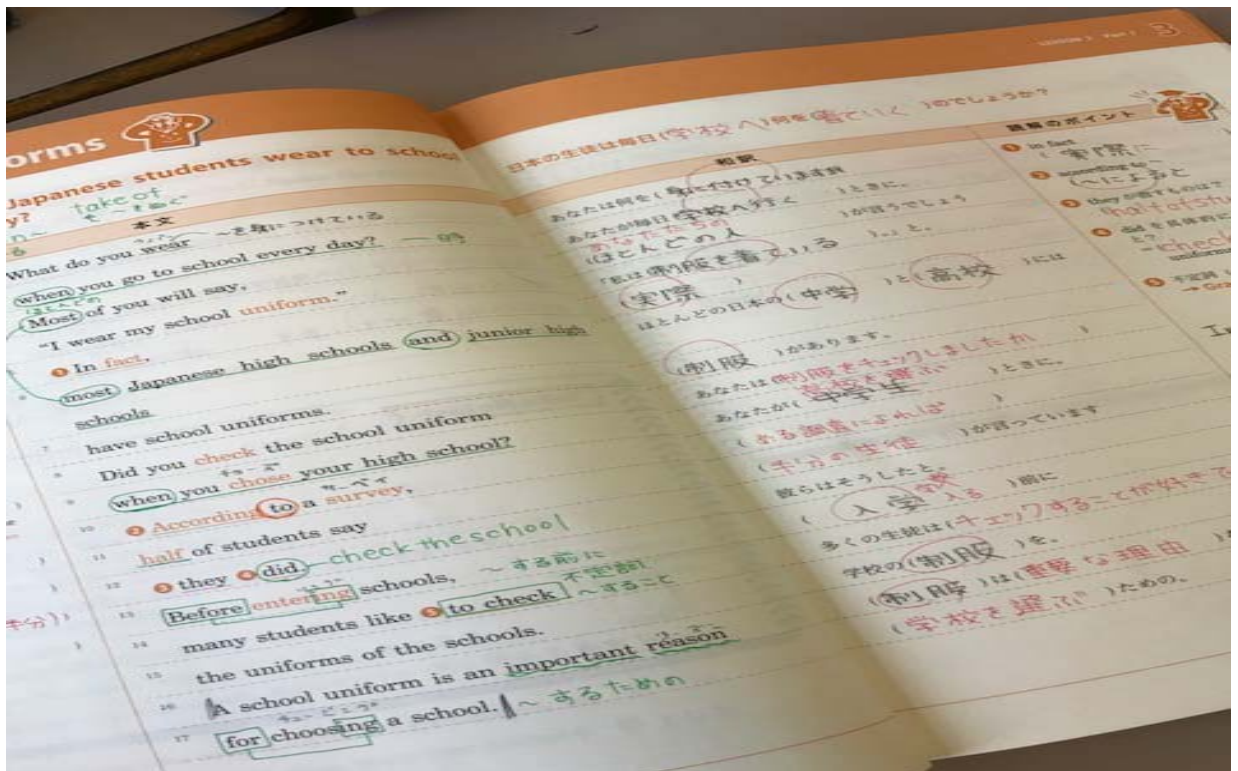 orms
Japanese students wear to school
y?
take of
本文
〜を身につけている
What do you wear
when you go to school every day?
一時
ほとんどの
Most of you will say,
"I wear my school uniform."
❶ In fact,
most Japanese high schools and junior high
schools
7 have school uniforms.
8 Did you check the school uniform
チョーズ
9 when you chose your high school?
サーベイ
10 ❷ According to a survey,
11 half of students say
12 ❸ they ❹ did. check the school
13 Before entering schools, 〜する前に
不定詞
14 many students like ❺ to check 〜すること
15 the uniforms of the schools.
16 A school uniform is an important reason
17 for choosing a school. 〜するための
半分))
LESSON 2 Part 1 3
日本の生徒は毎日(学校へ)何を(着ていく)のでしょうか?
和訳
あなたは何を(身に付けていますか
あなたが毎日(学校へ行く )ときに。
あなたたちの
(ほとんどの人 )が言うでしょう
「私は(制服を着ている )」と。
(実際 )
ほとんどの日本の(中学 )と(高校 )には
(制服 )があります。
あなたは(制服をチェックしましたか )
高校を選ぶ
あなたが(中学生 )ときに。
(ある調査によれば )
(半分の生徒 )が言っています
彼らはそうしたと。
(入学 学校 入る )前に
多くの生徒は(チェックすることが好きで
学校の(制服 )を。
(制服 )は(重要な理由 )
(学校を選ぶ )ための。
読解のポイント
❶ in fact
(実際に
❷ according to
(〜によると
❸ they が指すものは?
half of stu
❹ did を具体的に
と?
→ check
uniform
❺ 不定詞
→ Gra